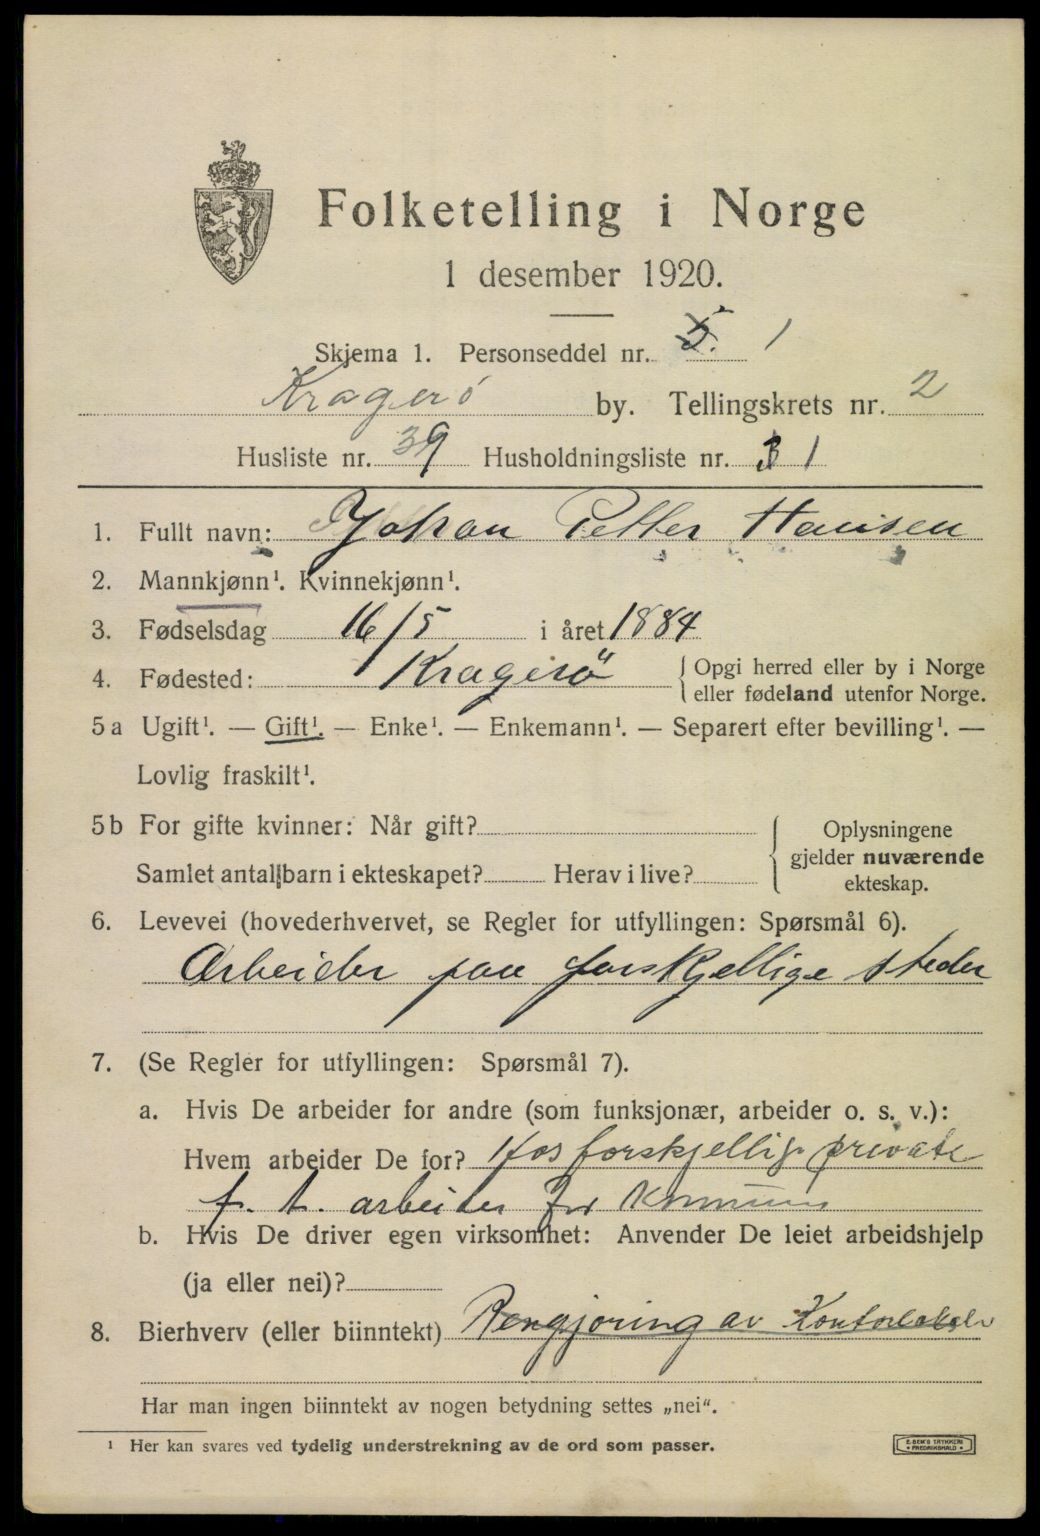 Folketelling i Norge
1 desember 1920.
Skjema 1. Personseddel nr. 5. 1
Kragerö by. Tellingskrets nr. 2
Husliste nr. 39 Husholdningsliste nr. 3 1
1. Fullt navn: Johan Petter Hansen
2. Mannkjønn¹. Kvinnekjønn¹.
3. Fødselsdag 16/5 i året 1884
4. Fødested: Kragerö { Opgi herred eller by i Norge
eller fødeland utenfor Norge.
5a Ugift¹. — Gift¹. — Enke¹. — Enkemann¹. — Separert efter bevilling¹. —
Lovlig fraskilt¹.
5b For gifte kvinner: Når gift?
Samlet antall barn i ekteskapet? Herav i live?
{ Oplysningene
gjelder nuværende
ekteskap.
6. Levevei (hovederhvervet, se Regler for utfyllingen: Spørsmål 6).
Arbeider paa forskjellige steder
7. (Se Regler for utfyllingen: Spørsmål 7).
a. Hvis De arbeider for andre (som funksjonær, arbeider o. s. v.):
Hvem arbeider De for? Hos forskjellig private
f. t. arbeider for Kommunen
b. Hvis De driver egen virksomhet: Anvender De leiet arbeidshjelp
(ja eller nei)?
8. Bierhverv (eller biinntekt) Rengjøring av Kontorlokaler
Har man ingen biinntekt av nogen betydning settes „nei“.
¹ Her kan svares ved tydelig understrekning av de ord som passer.
E. SEM'S TRYKKERI
FREDRIKSHALD